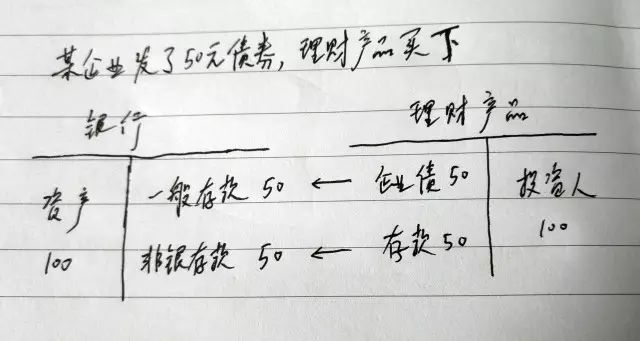 某企业发了50元债券,理财产品买下
银行 理财产品
资产 一般存款 50 ← 企业债 50 投资人
100 非银存款 50 ← 存款 50 100